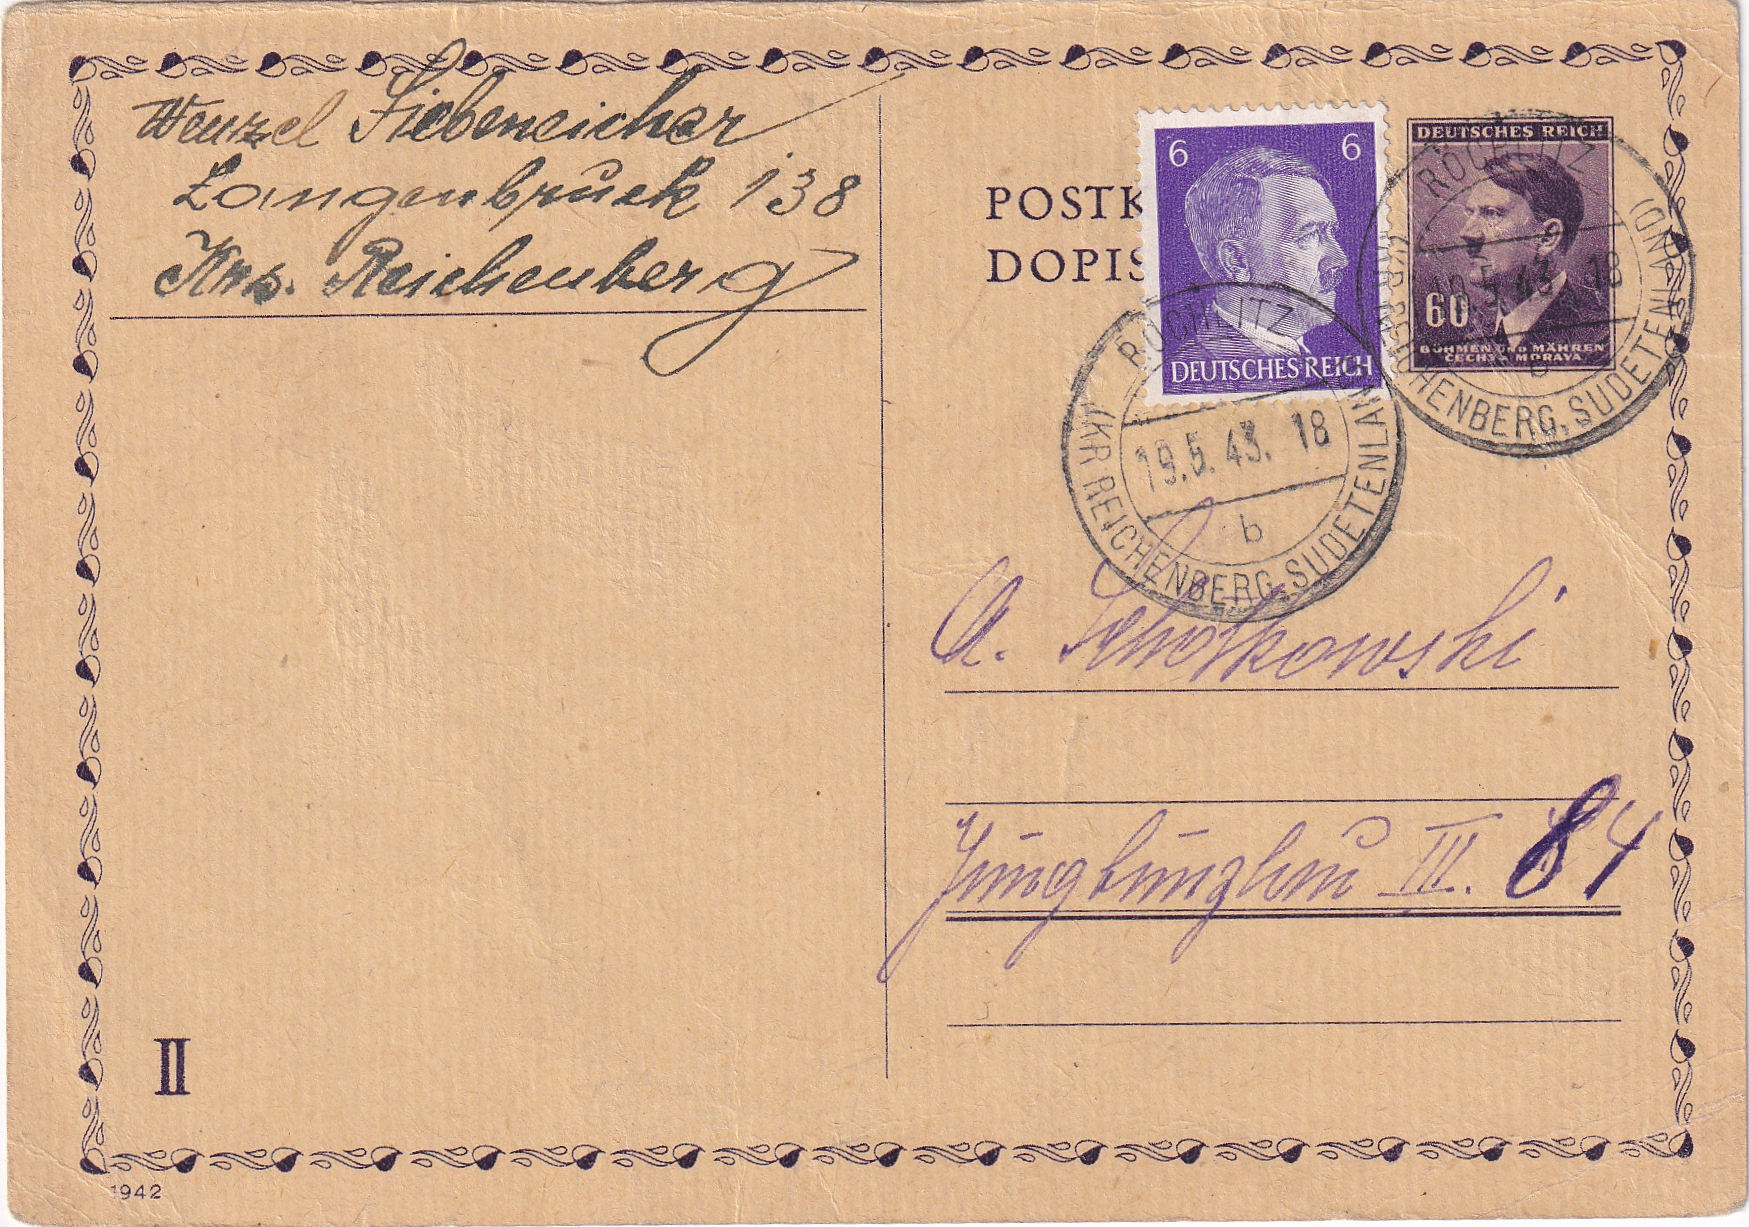 Wenzel Siebeneicher
Langenbruck 138
Krs. Reichenberg
POSTK
DOPIS
6 6
DEUTSCHES REICH
DEUTSCHES REICH
60
BÖHMEN UND MÄHREN
ČECHY A MORAVA
ROCHLITZ
(KR REICHENBERG, SUDETENLAND)
19.5.43. 18
b
ROCHLITZ
(KR REICHENBERG, SUDETENLAND)
19.5.43 18
A. Scholkowski
Jungbunzlau III. 84
II
1942